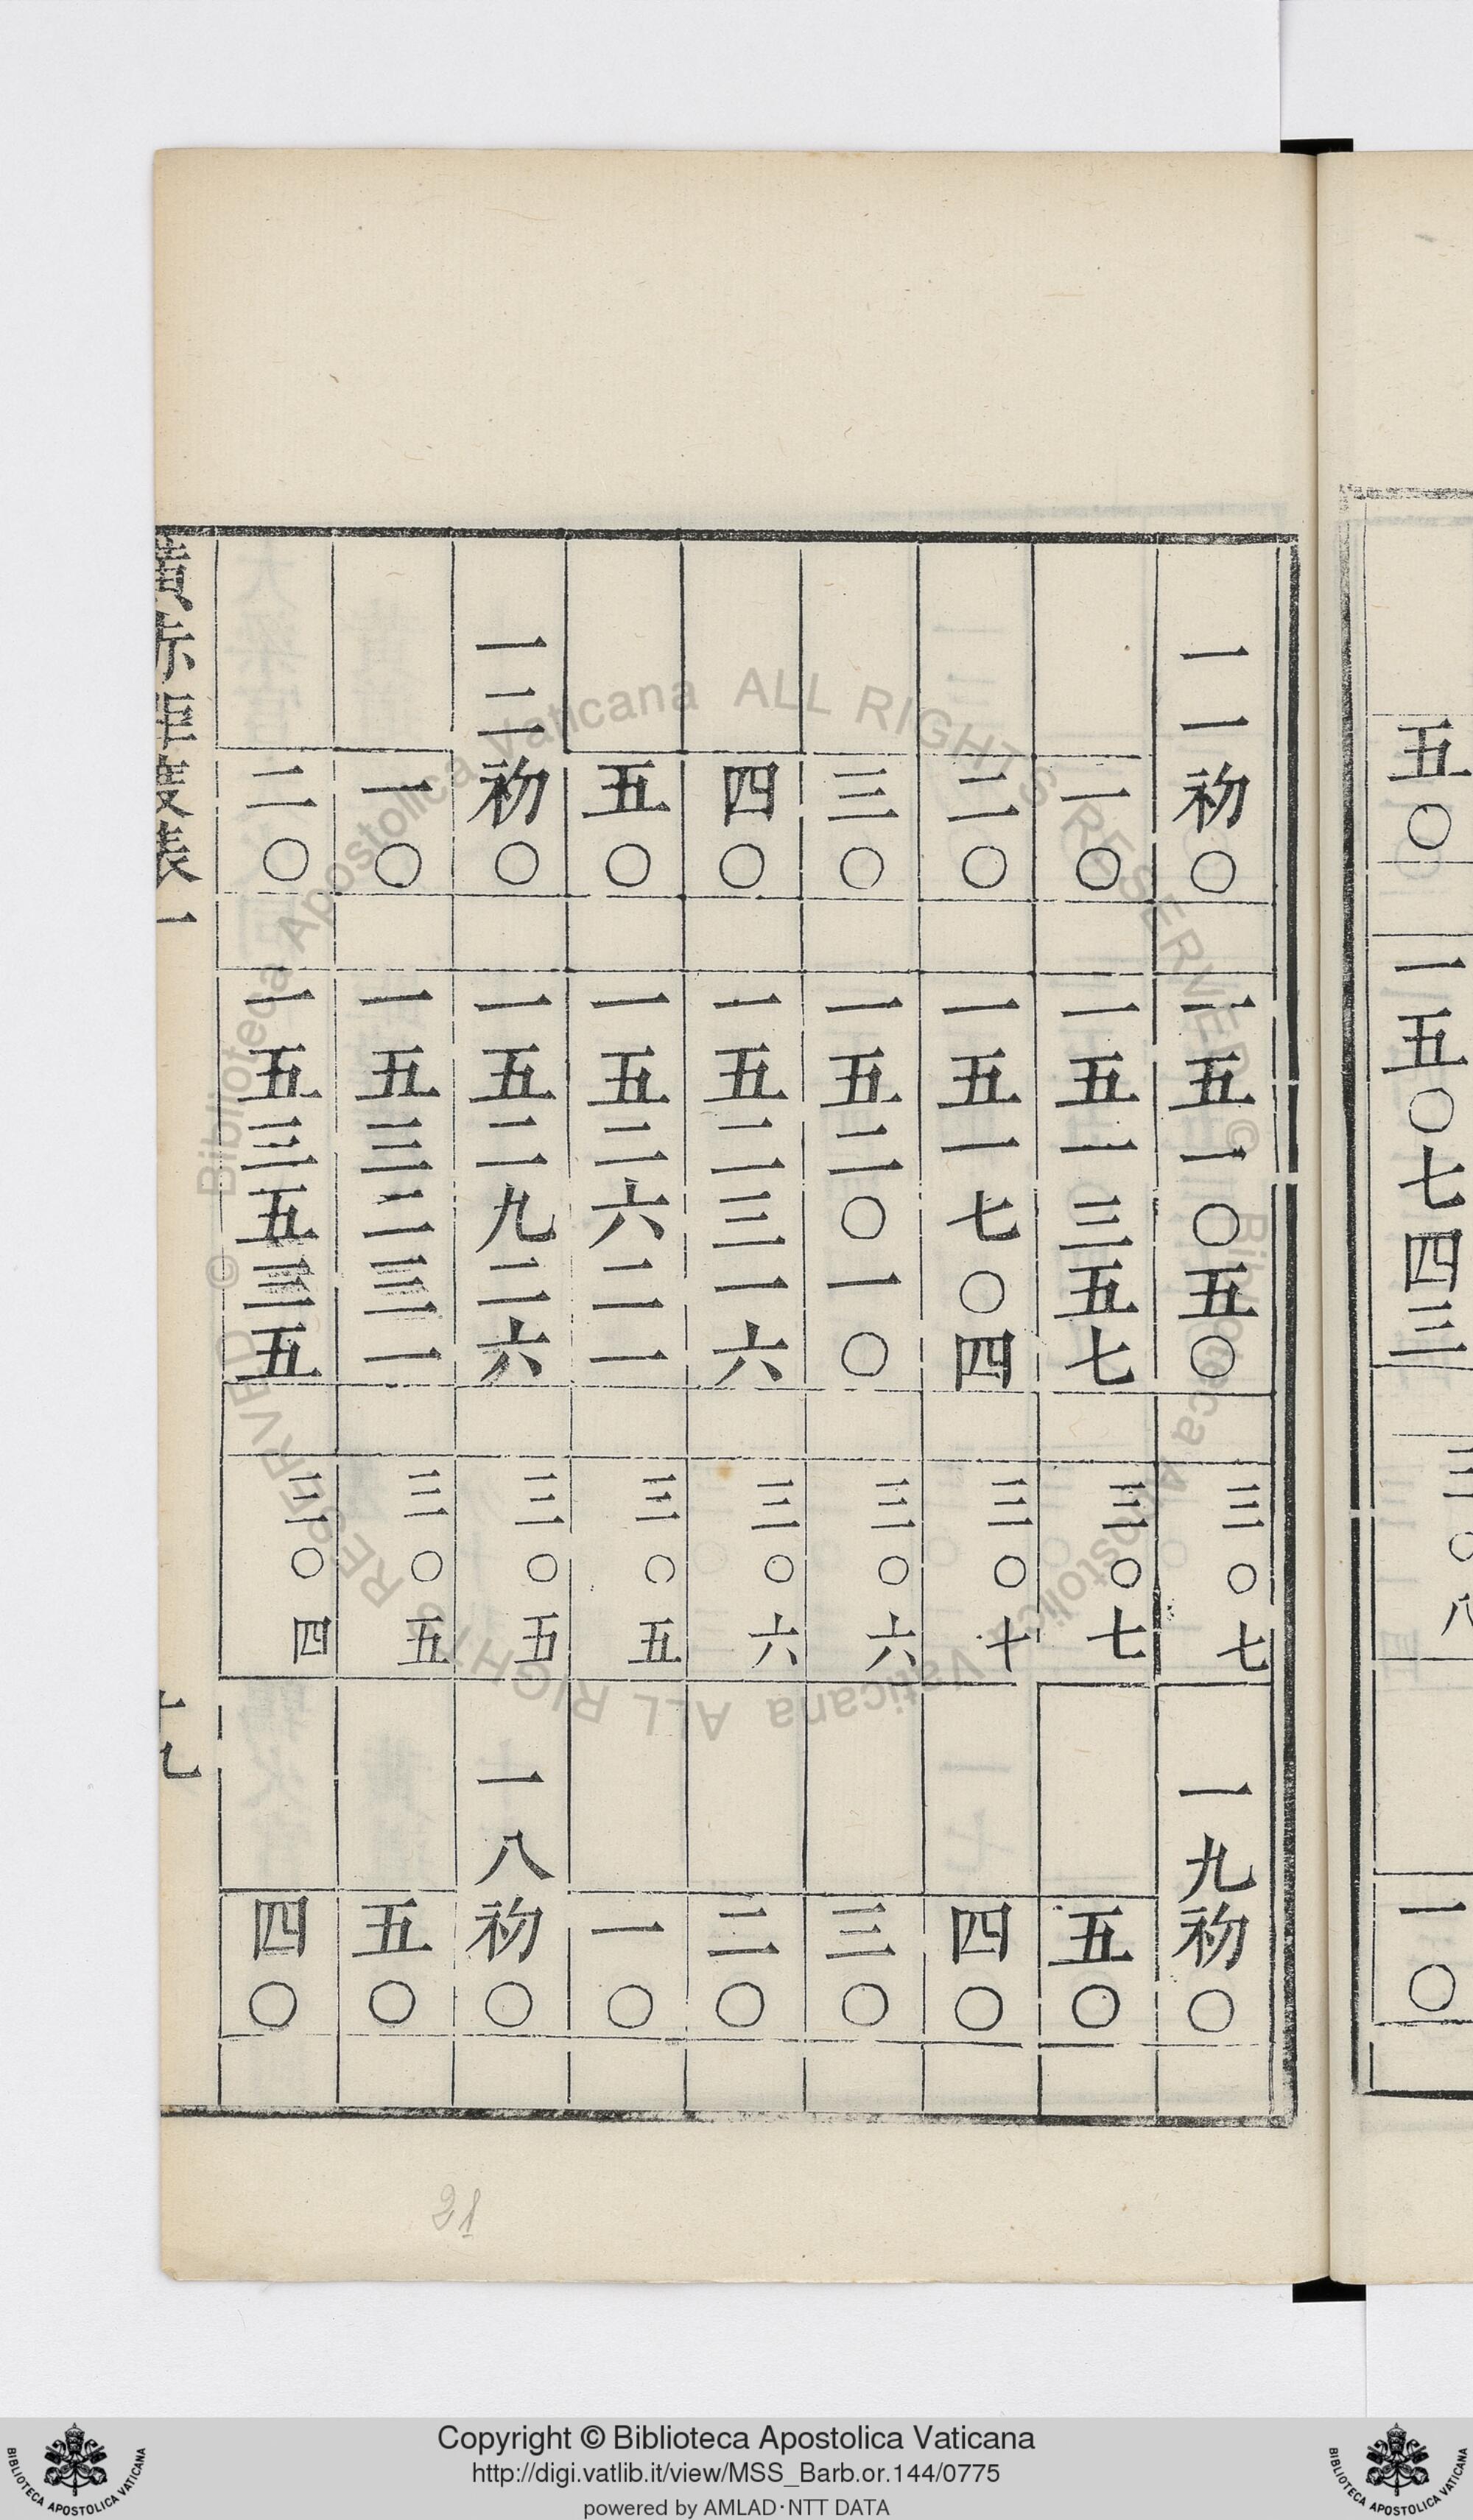 五〇 一五〇七四三 三〇八 一〇
一一初〇 一五一〇五〇 三〇七 一九初〇
一〇 一五一三五七 三〇七 五〇
二〇 一五一七〇四 三〇十 四〇
三〇 一五二〇一〇 三〇六 三〇
四〇 一五二三一六 三〇六 二〇
五〇 一五二六二一 三〇五 一〇
一二初〇 一五二九二六 三〇五 一八初〇
一〇 一五三二三一 三〇五 五〇
二〇 一五三五三五 三〇四 四〇
21
© Biblioteca Apostolica Vaticana ALL RIGHTS RESERVED © Biblioteca Apostolica Vaticana ALL RIGHTS RESERVED
Copyright © Biblioteca Apostolica Vaticana
http://digi.vatlib.it/view/MSS_Barb.or.144/0775
powered by AMLAD·NTT DATA
BIBLIOTECA APOSTOLICA VATICANA
BIBLIOTECA APOSTOLICA VATICANA